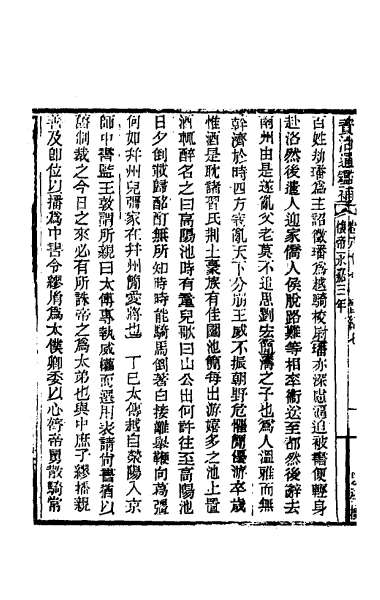 資治通鑑補
懷帝永嘉三年
百姓劫璠為主詔徵璠為越騎校尉璠亦深慮逼迫被書便輕身
赴洛然後遣人迎家僑人侯脫路難等相率衛送至都然後辭去
南州由是遂亂父老莫不追思劉宏簡濤之子也為人溫雅而無
幹濟於時四方寇亂天下分崩王威不振朝野危懼簡優游卒歲
惟酒是耽諸習氏荊土豪族有佳園池簡每出游嬉多之池上置
酒輒醉名之曰高陽池時有童兒歌曰山公出何許往至高陽池
日夕倒載歸酩酊無所知時時能騎馬倒著白接䍦舉鞭向葛彊
何如并州兒彊家在并州簡愛將也　丁巳太傅越自滎陽入京
師中書監王敦謂所親曰太傅專執威權而選用表請尚書猶以
舊制裁之今日之來必有所誅帝之為太弟也與中庶子繆播親
善及即位以播為中書令繆胤為太僕卿委以心膂帝舅散騎常